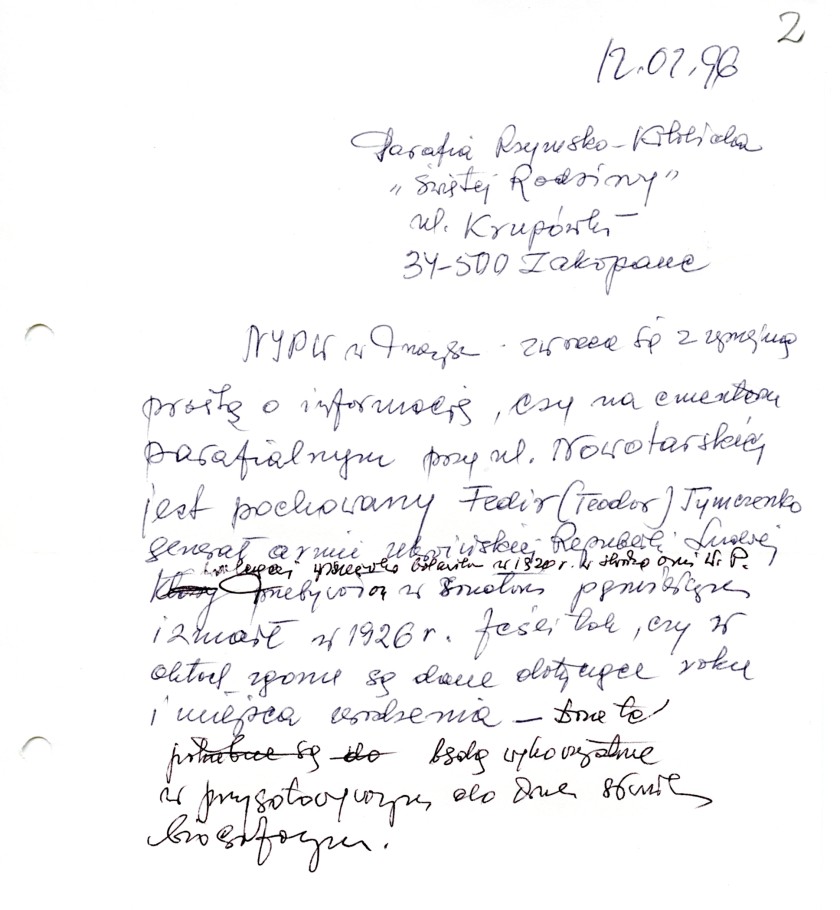 2
12.02.96
Parafia Rzymsko-Katolicka
"Świętej Rodziny"
ul. Krupówki
34-500 Zakopane
w zwraca się z uprzejmą
prośbą o informację, czy na cmentarzu
parafialnym przy ul. Nowotarskiej
jest pochowany Fedir (Teodor) Tymczenko
generał armii ukraińskiej Republiki Ludowej
walczącej przeciwko w 1920 r. w W. P.
który przebywał w
i zmarł w 1926 r. Jeśli tak, czy w
aktach zgonu są dane dotyczące roku
i miejsca urodzenia – Dane te
potrzebne są do będą wykorzystane
w przygotowywanym do druku słowniku
biograficznym.